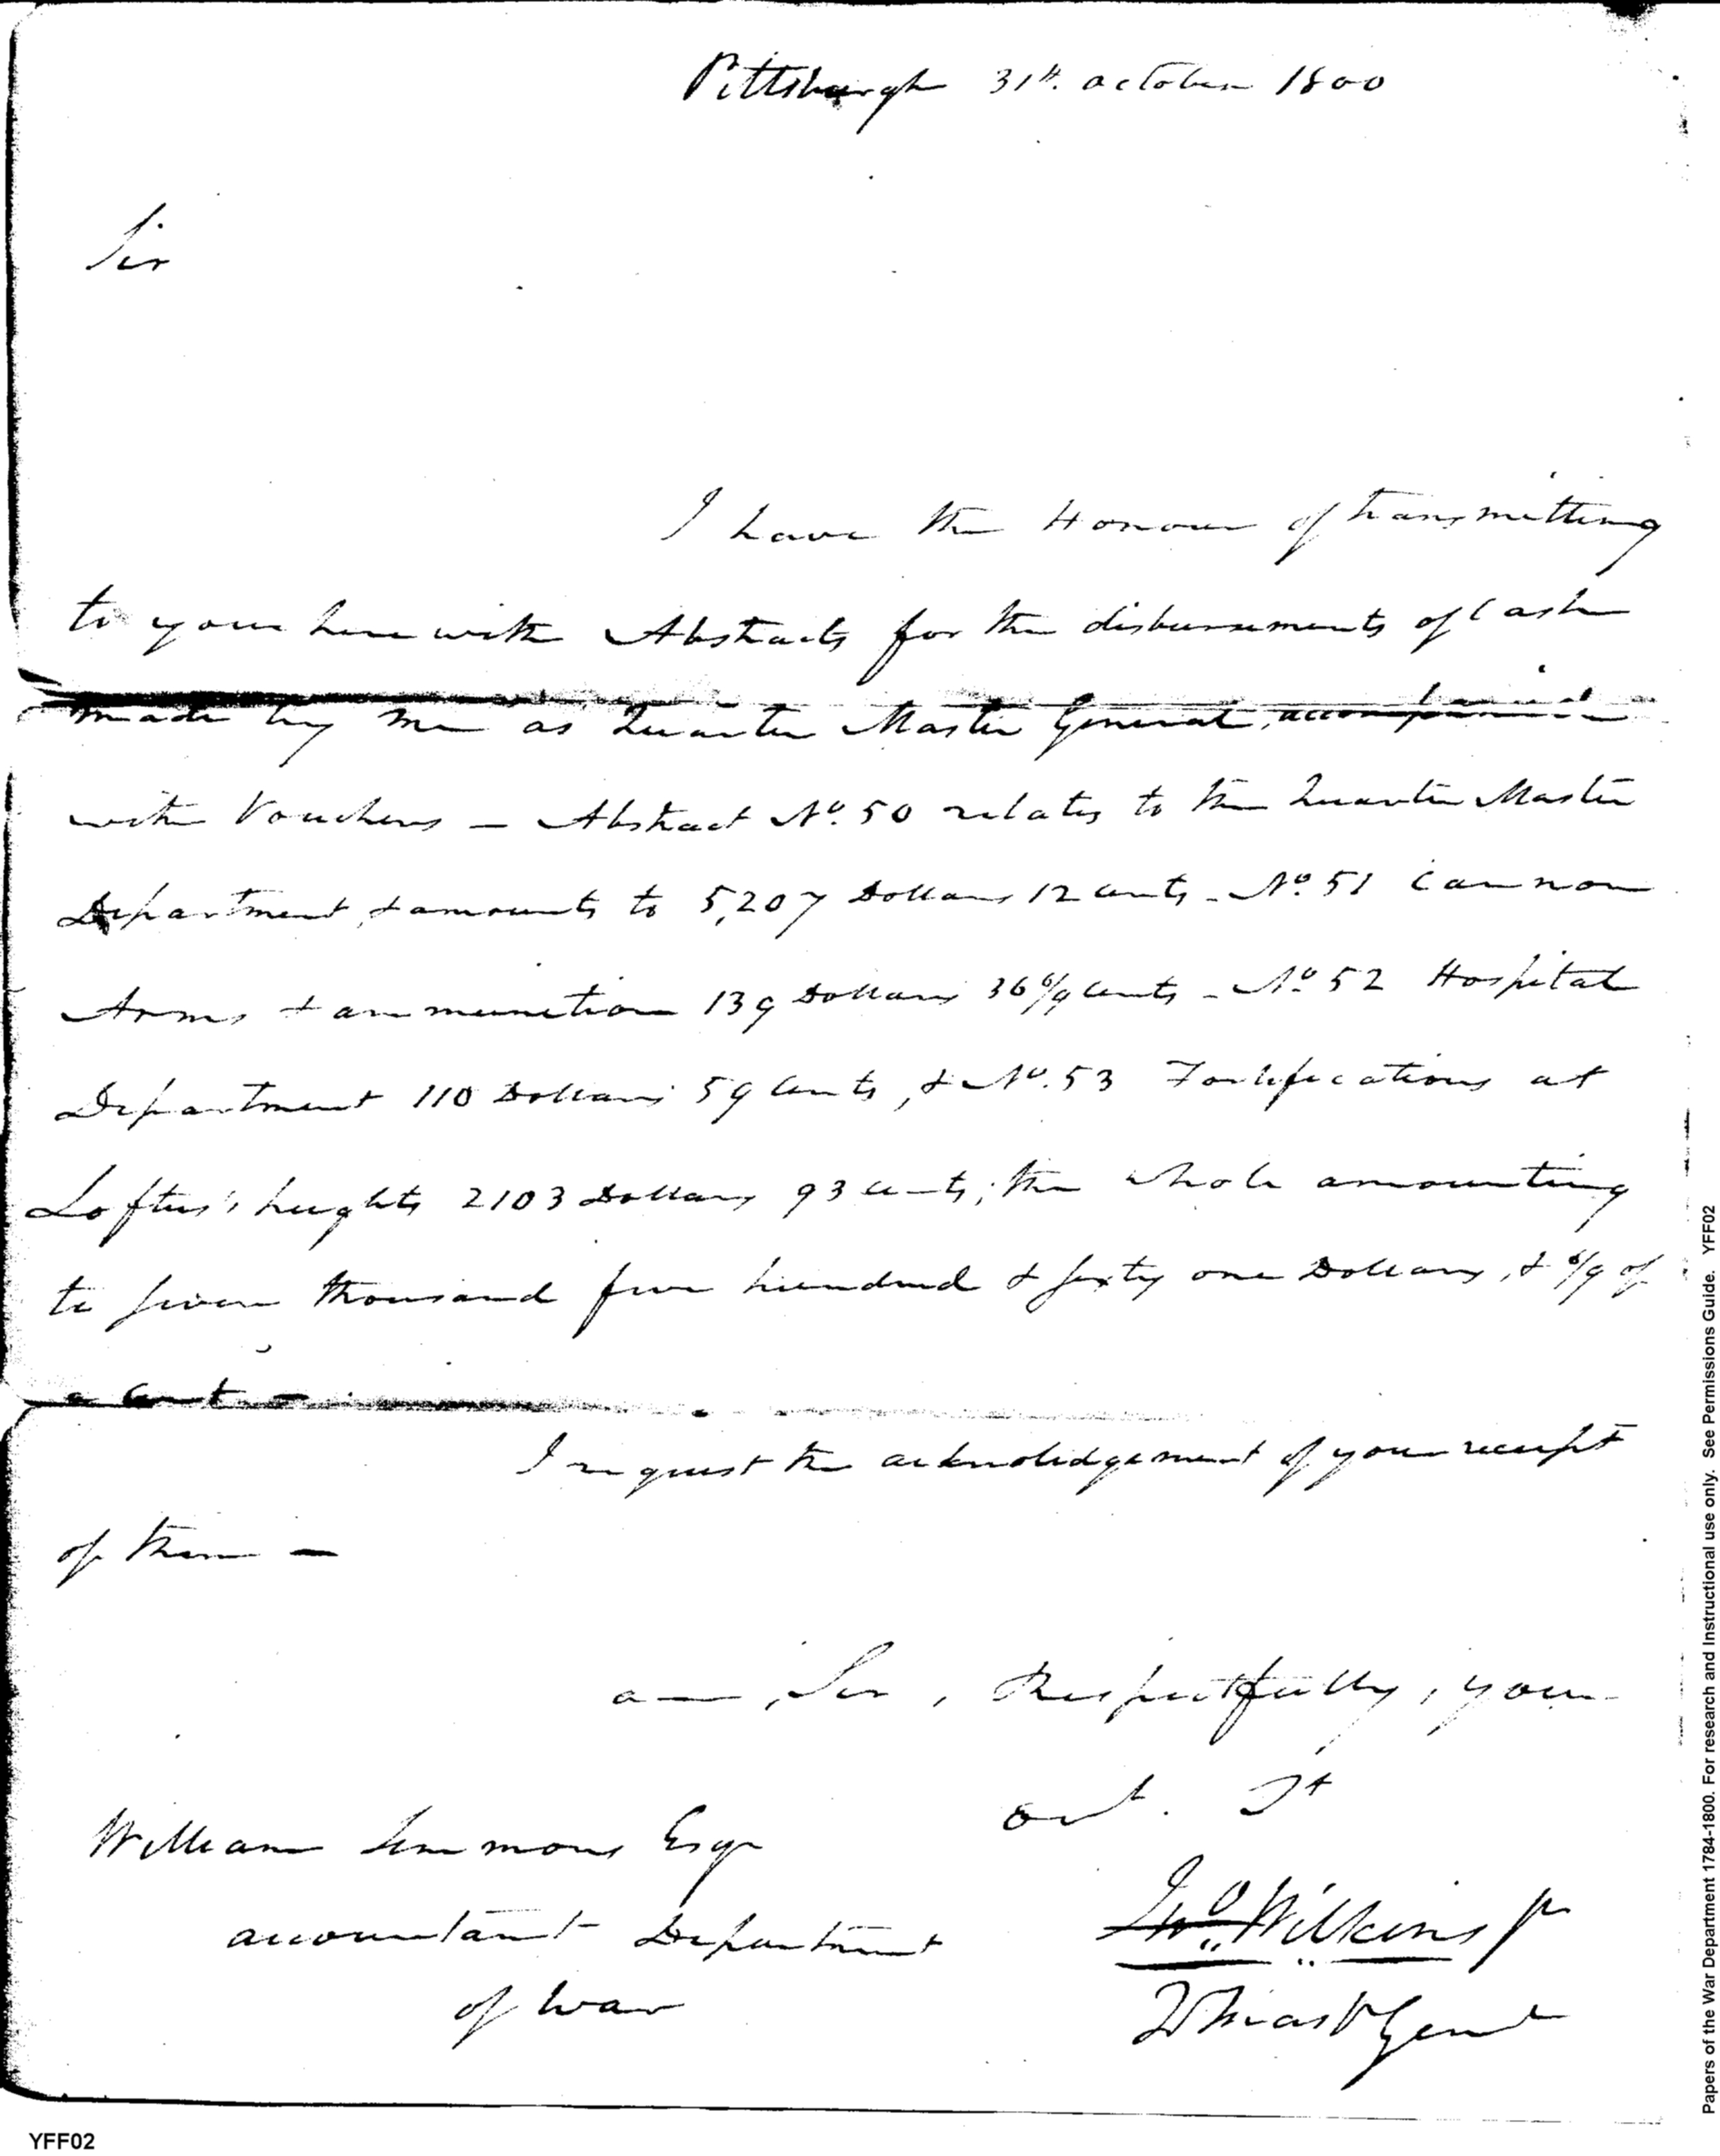 Pittsburgh 31st. october 1800
Sir
I have the Honour of transmitting
to you herewith Abstracts for the disbursements of Cash
made by me as Quarter Master General, accompanied
with Vouchers — Abstract No. 50 relates to the Quarter Master
Department, & amounts to 5,207 Dollars 12 Cents – No. 51 Cannon
Arms & ammunition 139 Dollars 36 6/9 Cents – No. 52 Hospital
Department 110 Dollars 59 Cents, & No. 53 Fortifications at
Loftus's heights 2103 Dollars 93 Cents; the whole amounting
to seven thousand five hundred & sixty one Dollars, & 6/9 of
a Cent —
I request the acknolidgement of your receipt
of them —
am, Sir, Respectfully, your
obt. St
William Simmons Esqr
accountant Department
of War
Jno. Wilkins Jr
QrMastr Genl
Papers of the War Department 1784-1800. For research and Instructional use only. See Permissions Guide. YFF02
YFF02